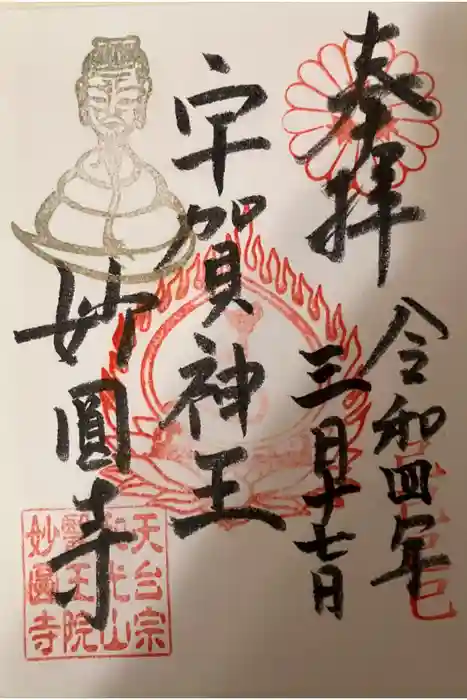 奉拝
令和四年
三月十七日
宇賀神王
妙圓寺
天台宗
醫王院
妙圓寺